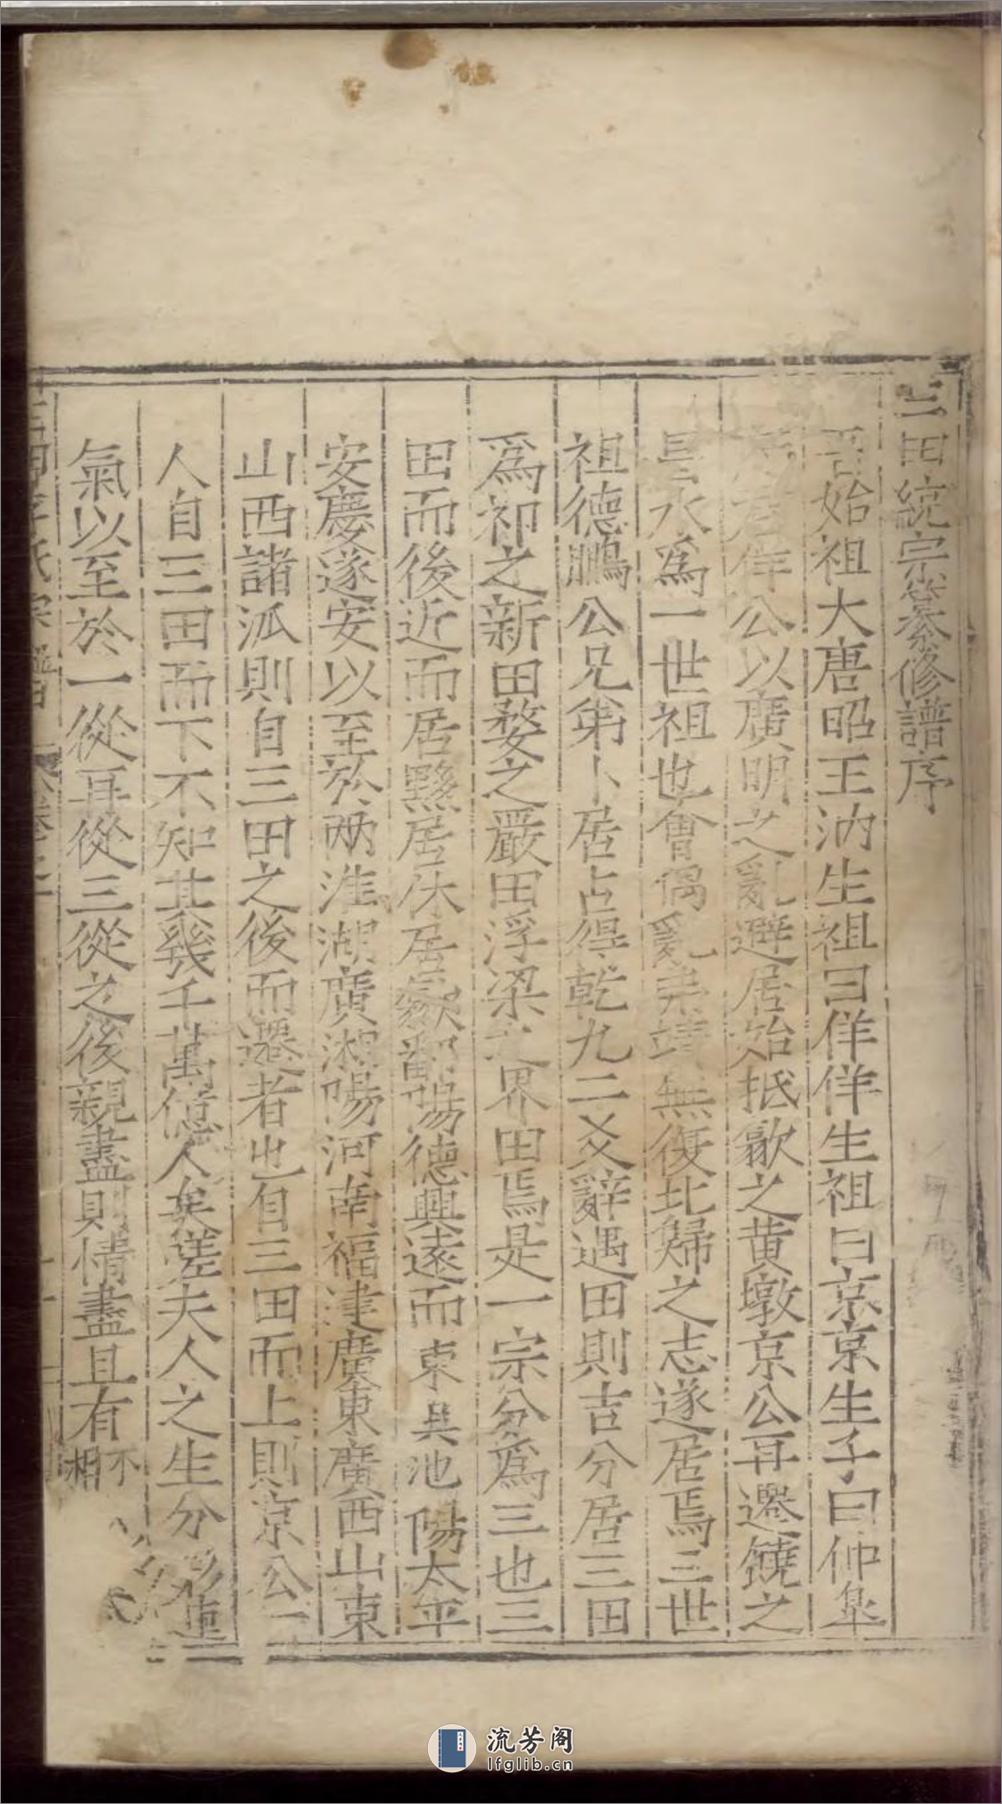 三田統宗纂修譜序
吾始祖大唐昭王汭生祖曰佯佯生祖曰京京生子曰仲皐
佯公以廣明之亂避居始抵歙之黄墩京公再遷饒之
水爲一世祖也會偶亂靖無復北歸之志遂居焉三世
祖德鵬公兄第卜居占得乾九二爻辭遇田則吉分居三田
爲祁之新田婺之嚴田浮梁之界田焉是一宗分爲三也三
田而後近而居黟居休居歙鄱陽德興遠而東吳池陽太平
安慶遂安以至於两淮湖廣湘陽河南福建廣東廣西山東
山西諸泒則自三田之後而遷者也自三田而上則京公一
人自三田而下不知其幾千萬億人矣嗟夫人之生分形連
氣以至於一從再從三從之後親盡則情盡且有不相
三田李氏宗譜
流芳阁
lfglib.cn